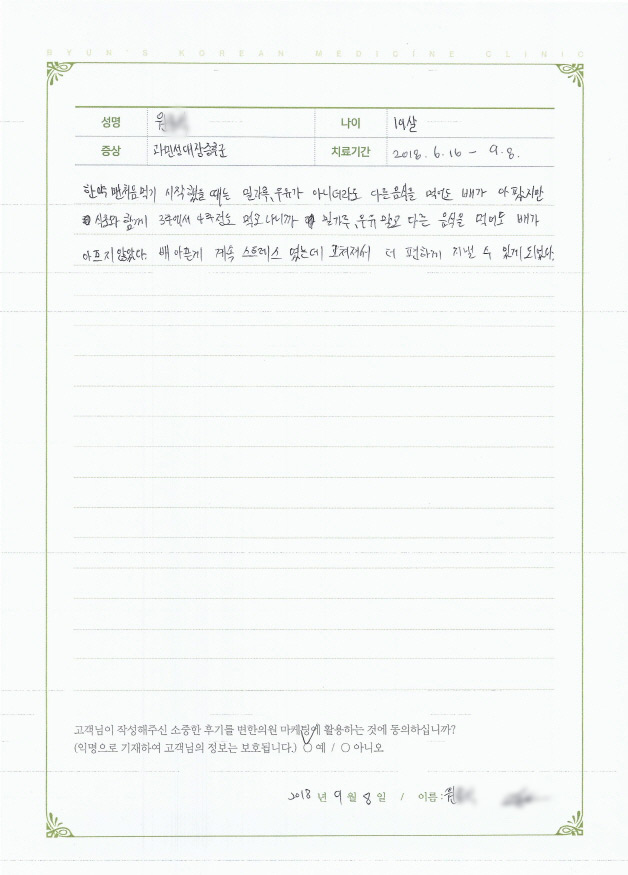 BYUN'S KOREAN MEDICINE CLINIC
성명 나이 19살
증상 과민성대장증후군 치료기간 2018. 6. 16 - 9. 8.
한약 맨처음 먹기 시작 했을 때는 밀가루, 우유가 아니더라도 다른 음식을 먹어도 배가 아팠지만
함께 3주에서 4주정도 먹으니까 밀가루, 우유 말고 다른 음식을 먹어도 배가
아프지 않았다. 배 아픈게 계속 스트레스 였는데 고쳐져서 더 편하게 지낼 수 있게 되었다.
고객님이 작성해주신 소중한 후기를 변한의원 마케팅에 활용하는 것에 동의하십니까?
(익명으로 기재하여 고객님의 정보는 보호됩니다.) ○ 예 / ○ 아니오
2018 년 9 월 8 일 / 이름 :